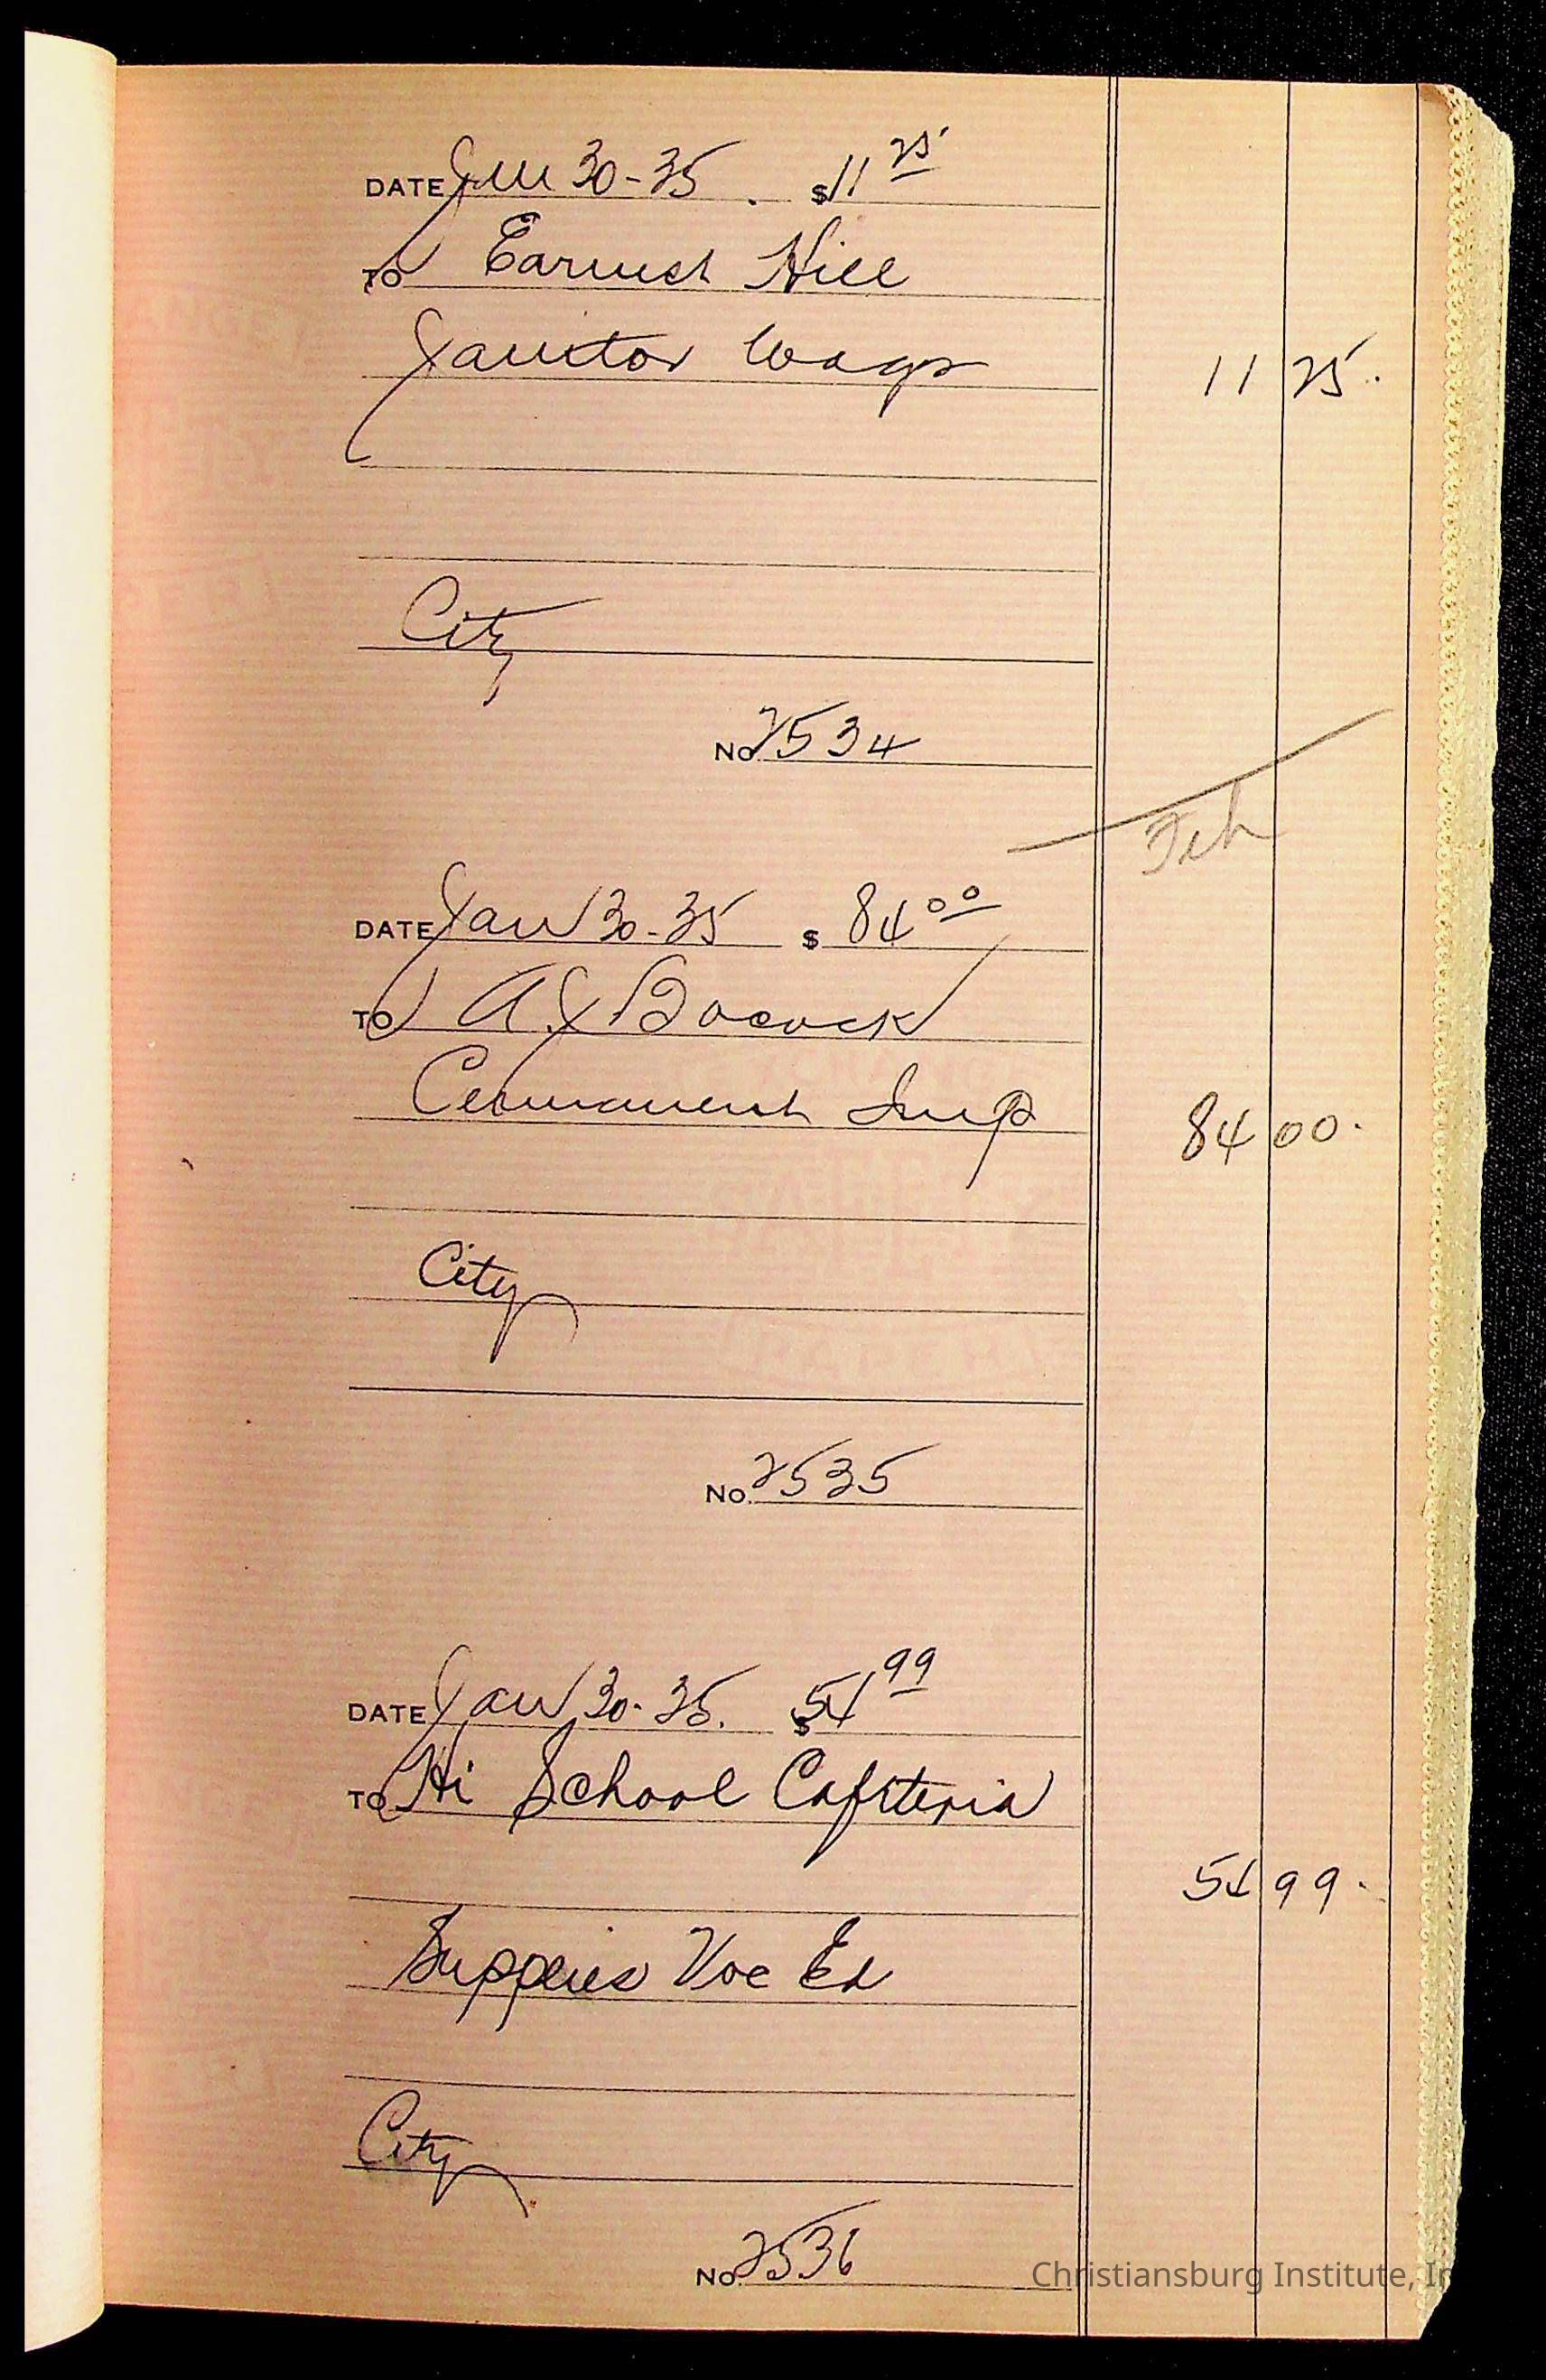 DATE Jan 30-35. $11 25
TO Earnest Hill
Janitor Wags 11 25.
City
No. 2534
Feb
DATE Jan 30-35 $ 84 00
TO A. J. Bocock
Permanent Imp 84 00.
City
No. 2535
DATE Jan 30-35. $54 99
TO Hi School Cafeteria
54 99.
Supplies Voc Ed
City
No. 2536
Christiansburg Institute, In